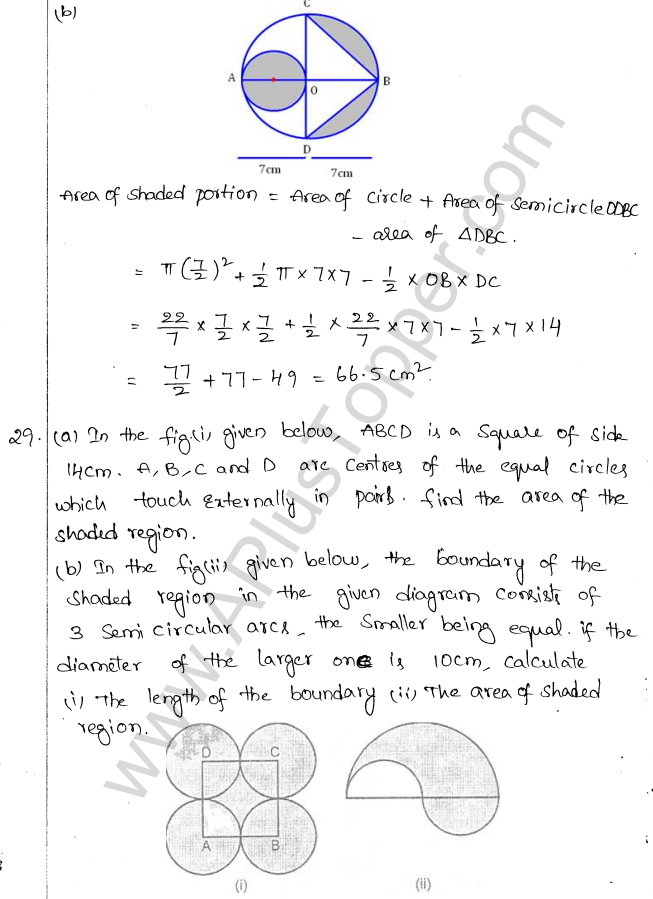 (b)
C
A
O
B
D
7cm 7cm
Area of shaded portion = Area of circle + Area of semicircle DDBC
- area of ΔDBC.
= π(7/2)² + 1/2 π × 7×7 - 1/2 × OB × DC
= 22/7 × 7/2 × 7/2 + 1/2 × 22/7 × 7×7 - 1/2 × 7 × 14
= 77/2 + 77 - 49 = 66.5 cm².
29. (a) In the fig.(i) given below, ABCD is a square of side
14cm. A, B, C and D are centres of the equal circles
which touch externally in pairs. find the area of the
shaded region.
(b) In the fig(ii) given below, the boundary of the
shaded region in the given diagram consists of
3 semi circular arcs, the smaller being equal. if the
diameter of the larger one is 10cm, calculate
(i) The length of the boundary (ii) The area of shaded
region.
D C
A B
(i) (ii)
www.APlusTopper.com